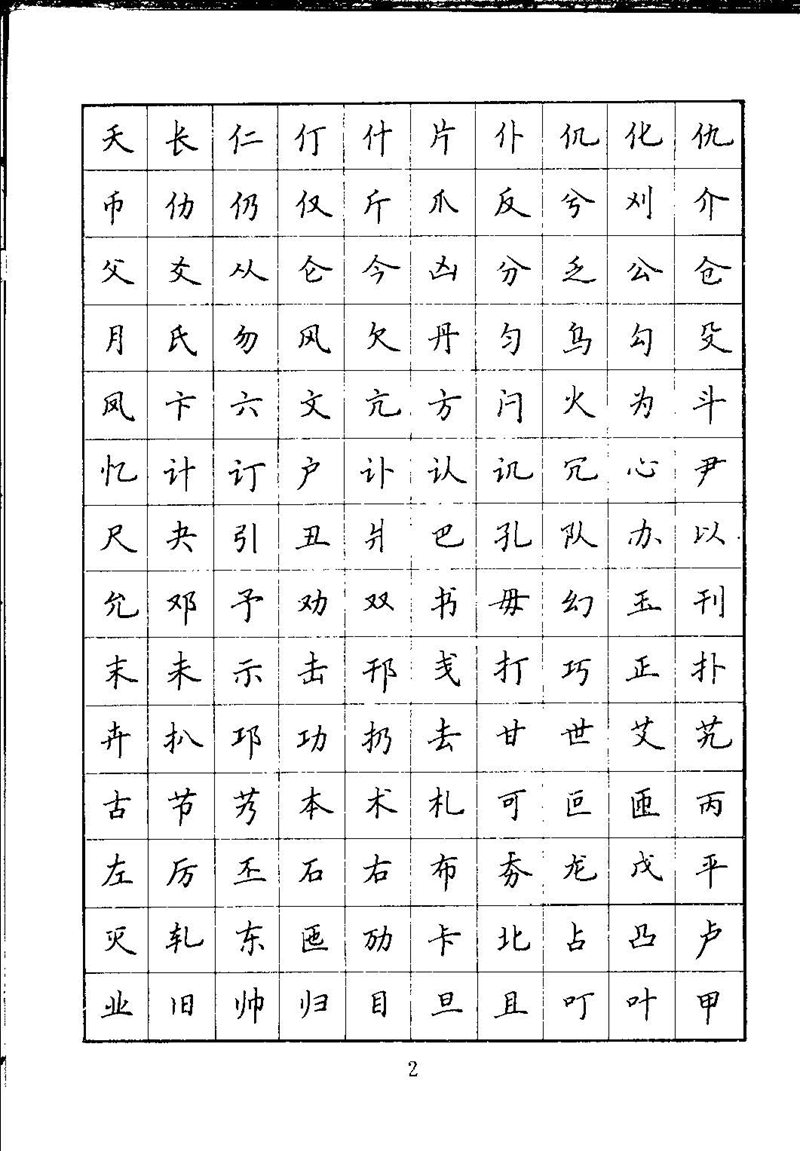 夭 长 仁 仃 什 片 仆 仉 化 仇
币 仂 仍 仅 斤 爪 反 兮 刈 介
父 爻 从 仑 今 凶 分 乏 公 仓
月 氏 勿 风 欠 丹 匀 乌 勾 殳
凤 卞 六 文 亢 方 闩 火 为 斗
忆 计 订 户 讣 认 讥 冗 心 尹
尺 夬 引 丑 爿 巴 孔 队 办 以
允 邓 予 劝 双 书 毋 幻 玉 刊
末 未 示 击 邗 戋 打 巧 正 扑
卉 扒 邛 功 扔 去 甘 世 艾 艽
古 节 艿 本 术 札 可 叵 匝 丙
左 厉 丕 石 右 布 夯 龙 戊 平
灭 轧 东 匜 劢 卡 北 占 凸 卢
业 旧 帅 归 目 旦 且 叮 叶 甲
2